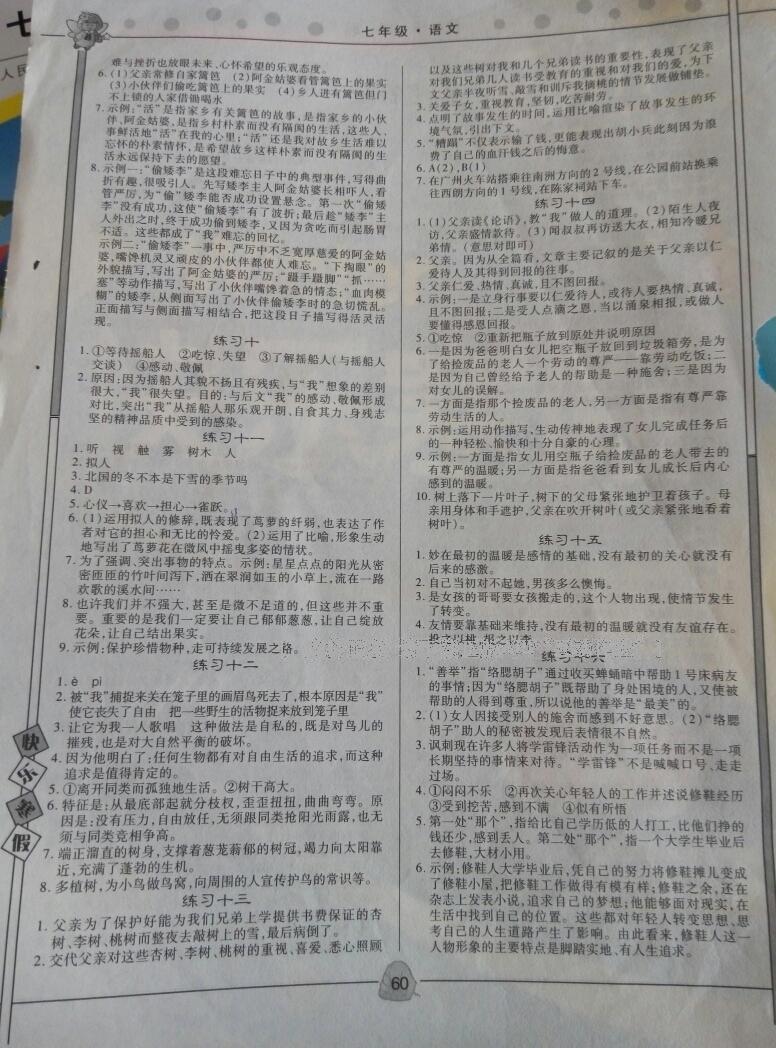 七年级·语文
七
人民
难与挫折也放眼未来、心怀希望的乐观态度。
6. (1)父亲常修自家篱笆 (2)阿金姑婆看管篱笆上的果实
(3)小伙伴们偷吃篱笆上的果实 (4)乡人进有篱笆但门
不上锁的人家借锄喝水
7. 示例:“活”是指家乡有关篱笆的故事,是指家乡的小伙
伴、阿金姑婆,是指乡村朴素而没有隔阂的生活,这些人、
事鲜活地“活”在我的心里;“活”还是我对故乡生活难以
忘怀的朴素情怀,是希望故乡这样朴素而没有隔阂的生
活永远保持下去的愿望。
8. 示例一:“偷矮李”是这段难忘日子中的典型事件,写得曲
折有趣,很吸引人。先写矮李主人阿金姑婆长相吓人,看
管严厉,为“偷”矮李能否成功设置悬念。第一次“偷矮
李”没有成功,这使“偷矮李”有了波折;最后趁“矮李”主
人外出之时,终于成功偷到矮李,又因为贪吃而引起肠胃
不适。这些都成了“我”难忘的回忆。
示例二:“偷矮李”一事中,严厉中不乏宽厚慈爱的阿金姑
婆,嘴馋机灵又顽皮的小伙伴都使人难忘。“下掏眼”的
外貌描写,写出了阿金姑婆的严厉;“蹑手蹑脚”“抓……
塞”等动作描写,写出了小伙伴嘴馋着急的情态;“血肉模
糊”的矮李,从侧面写出了小伙伴偷矮李时的急切慌乱。
正面描写与侧面描写相结合,把这段日子描写得活灵活
现。
练习十
1. ①等待摇船人 ②吃惊、失望 ③了解摇船人(与摇船人
交谈) ④感动、敬佩
2. 原因:因为摇船人其貌不扬且有残疾,与“我”想象的差别
很大,“我”很失望。目的:与后文“我”的感动、敬佩形成
对比,突出“我”从摇船人那乐观开朗,自食其力、身残志
坚的精神品质中受到的感染。
练习十一
1. 听 视 触 雾 树木 人
2. 拟人
3. 北国的冬不本是下雪的季节吗
4. D
5. 心仪→喜欢→担心→雀跃。
6. (1)运用拟人的修辞,既表现了茑萝的纤弱,也表达了作
者对它的担心和无比的怜爱。(2)运用了比喻,形象生动
地写出了茑萝花在微风中摇曳多姿的情状。
7. 为了强调、突出事物的特点。示例:星星点点的阳光从密
密匝匝的竹叶间泻下,洒在翠润如玉的小草上,流在一路
欢歌的溪水间……
8. 也许我们并不强大,甚至是微不足道的,但这些并不重
要。重要的是我们一定要让自己郁郁葱葱,让自己绽放
花朵,让自己结出果实。
9. 示例:保护珍惜物种,走可持续发展之路。
练习十二
1. è pì
2. 被“我”捕捉来关在笼子里的画眉鸟死去了,根本原因是“我”
使它丧失了自由 把一些野生的活物捉来放到笼子里
3. 让它为我一人歌唱 这种做法是自私的,既是对鸟儿的
摧残,也是对大自然平衡的破坏。
4. 因为他明白了:任何生物都有对自由生活的追求,而这种
追求是值得肯定的。
5. ①离开同类而孤独地生活。②树干高大。
6. 特征是:从最底部起就分枝杈,歪歪扭扭,曲曲弯弯。原
因是:没有压力,自由放任,无须跟同类抢阳光雨露,也无
须与同类竞相争高。
7. 端正溜直的树身,支撑着葱茏蓊郁的树冠,竭力向太阳靠
近,充满了蓬勃的生机。
8. 多植树,为小鸟做鸟窝,向周围的人宣传护鸟的常识等。
练习十三
1. 父亲为了保护好能为我们兄弟上学提供书费保证的杏
树、李树、桃树而整夜去敲树上的雪,最后病倒了。
2. 交代父亲对这些杏树、李树、桃树的重视、喜爱、悉心照顾
以及这些树对我和几个兄弟读书的重要性,表现了父亲
对我们兄弟几人读书受教育的重视和对我们的爱,为下
文父亲半夜听雪、敲雪和训斥我摘桃的情节发展做铺垫。
3. 关爱子女,重视教育,坚韧,吃苦耐劳。
4. 点明了故事发生的时间,运用比喻渲染了故事发生的环
境气氛,引出下文。
5. “糟蹋”不仅表示输了钱,更能表现出胡小兵此刻因为浪
费了自己的血汗钱之后的悔意。
6. A(2),B(1)
7. 在广州火车站搭乘往南洲方向的2号线,在公园前站换乘
往西朗方向的1号线,在陈家祠站下车。
练习十四
1. (1)父亲读《论语》,教“我”做人的道理。(2)陌生人夜
访,父亲盛情款待。(3)闻叔叔再访送大衣,相知冷暖兄
弟情。(意思对即可)
2. 父亲。因为从全篇看,文章主要记叙的是关于父亲以仁
爱待人及其得到回报的往事。
3. 父亲仁爱,热情,真诚,且不图回报。
4. 示例:一是立身行事要以仁爱待人,或待人要热情、真诚,
且不图回报;二是受人点滴之恩,当以涌泉相报,或做人
要懂得感恩回报。
5. ①吃惊 ②重新把瓶子放到原处并说明原因
6. 一是因为爸爸明白女儿把空瓶子放回到垃圾箱旁,是为
了给捡废品的老人一个劳动的尊严——靠劳动吃饭;二
是因为自己曾经给予老人的帮助是一种施舍;三是因为
对女儿的误解。
7. 一方面是指那个捡废品的老人,另一方面是指有尊严靠
劳动生活的人。
8. 示例:运用动作描写,生动传神地表现了女儿完成任务后
的一种轻松、愉快和十分自豪的心理。
9. 示例:一方面是指女儿用空瓶子给捡废品的老人带去的
有尊严的温暖;另一方面是指爸爸看到女儿成长后内心
感到的温暖。
10. 树上落下一片叶子,树下的父母紧张地护卫着孩子。母
亲用身体和手遮护,父亲在吹开树叶(或父亲紧张地看着
树叶)。
练习十五
1. 妙在最初的温暖是感情的基础,没有最初的关心就没有
后来的感激。
2. 自己当初对不起她,男孩多么懊悔。
3. 是女孩的哥哥要女孩搬走的,这个人物出现,使情节发生
了转变。
4. 友情要靠基础来维持,没有最初的温暖就没有友谊存在。
投之以桃,报之以李。
练习十六
1. “善举”指“络腮胡子”通过收买蝉蛹暗中帮助1号床病友
的事情;因为“络腮胡子”既帮助了身处困境的人,又使被
帮助的人得到尊重,所以说他的善举是“最美”的。
2. (1)女人因接受别人的施舍而感到不好意思。(2)“络腮
胡子”助人的秘密被发现后表情很不自然。
3. 讽刺现在许多人将学雷锋活动作为一项任务而不是一项
长期坚持的事情来对待。“学雷锋”不是喊喊口号、走走
过场。
4. ①闷闷不乐 ②再次关心年轻人的工作并述说修鞋经历
③受到挖苦,感到不满 ④似有所悟
5. 第一处“那个”,指给比自己学历低的人打工,比他们挣的
钱还少,感到丢人。第二处“那个”,指一个大学生毕业后
去修鞋,大材小用。
6. 示例:修鞋人大学毕业后,凭自己的努力将修鞋摊儿变成
了修鞋小屋,把修鞋工作做得有模有样;修鞋之余,还在
杂志上发表小说,追求自己的梦想;他能够面对现实,在
生活中找到自己的位置。这些都对年轻人转变思想、思
考自己的人生道路产生了影响。由此看来,修鞋人这一
人物形象的主要特点是脚踏实地、有人生追求。
快
乐
暑
假
60